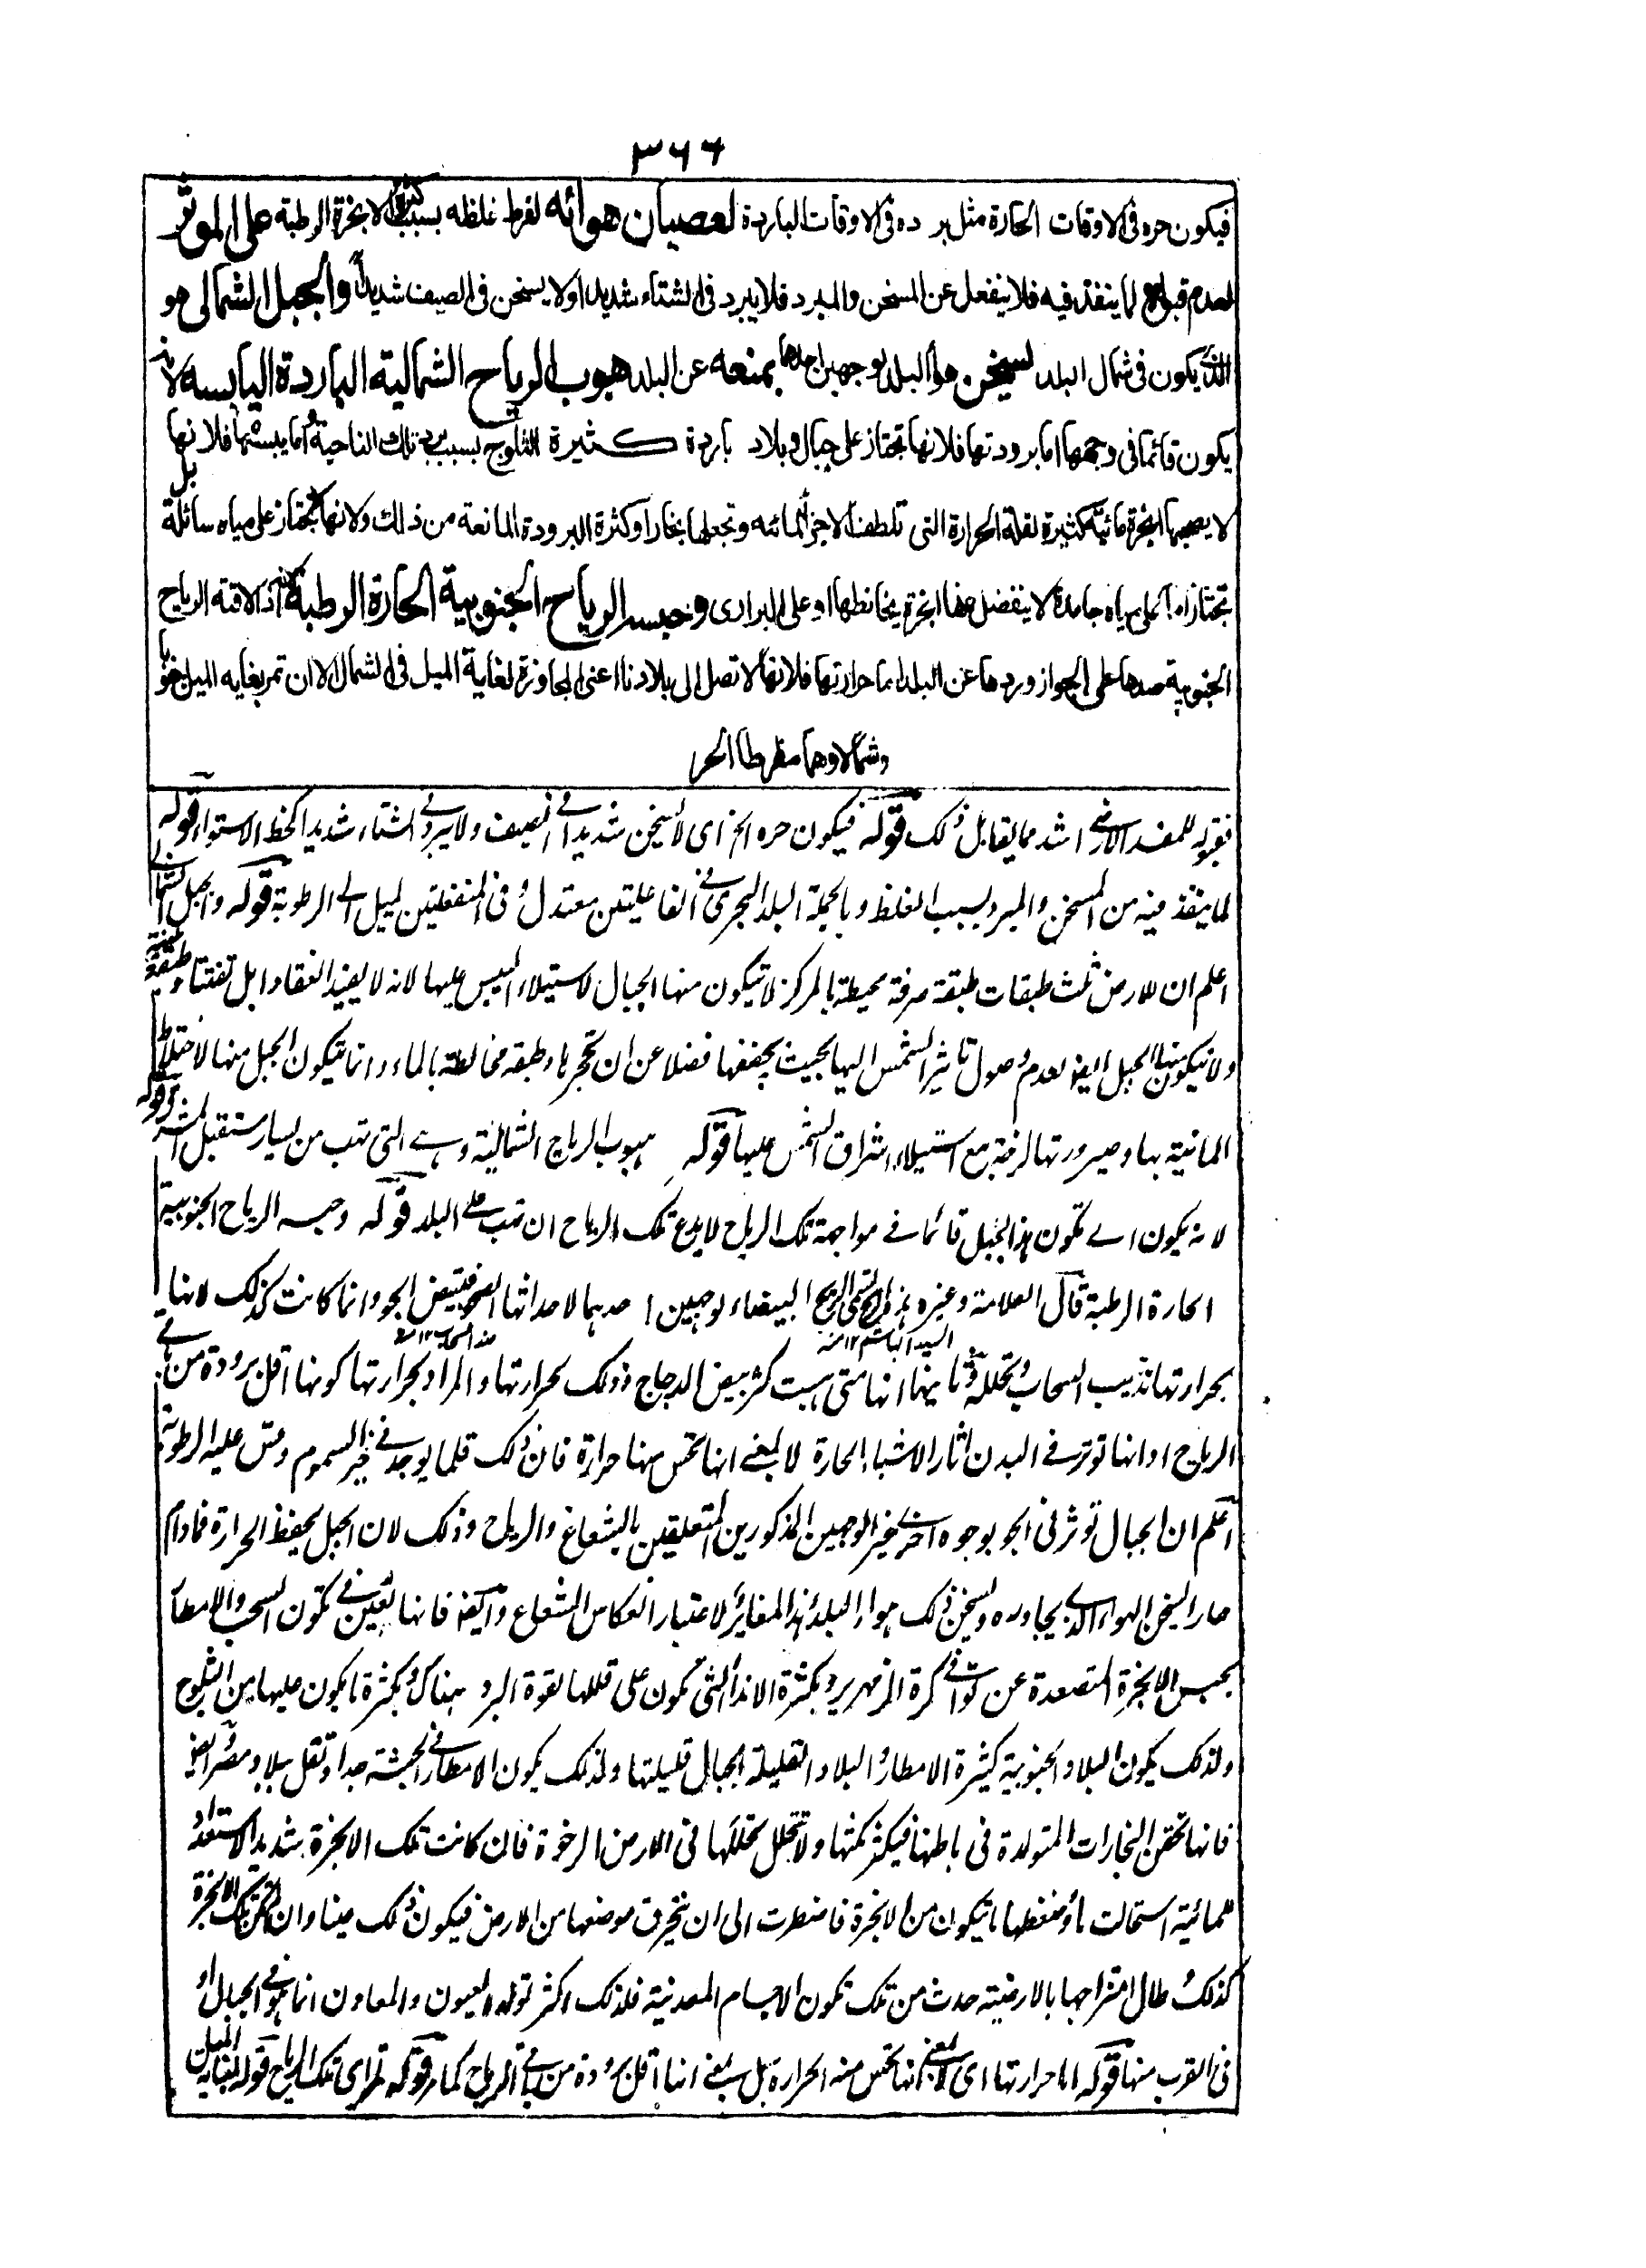 ٣٦٦
فيكون حره فى الاوقات الحارة مثل برده فى الاوقات الباردة لعصيان هوائه لفرط غلظه بسبب كثرة الابخرة الرطبة على المؤثر
لعدم قبوله لما ينفذ فيه فلا ينفعل عن المسخن والمبرد فلا يبرد فى الشتاء شديدا ولا يسخن فى الصيف شديدا والجبل الشمالى هو
الذى يكون فى شمال البلد لسيخن هوأ البلد بوجهين احدهما بمنعه عن البلد هبوب الرياح الشمالية الباردة اليابسه لانه
يكون قائما فى وجهها اما برودتها فلانها تجتاز على جبال وبلاد باردة كثيرة الثلوج بسبب برد تلك الناحية واما يبسها فلانها
لا يصحبها ابخرة مائية كثيرة لقلة الحرارة التى تلطف الاجزأ المائته وتجعلها بخارا وكثرة البرودة المانعة من ذلك ولانها لا تجتاز على مياه سائلة بل
تجتاز اما على مياه جامدة لا ينفصل عنها ابخرة يخالطها او على البرارى وحبسه الرياح الجنوبية الحارة الرطبة لانه اذ لاقته الرياح
الجنوبية صدها على الجواز وردها عن البلد اما حرارتها فلانها لا تصل الى بلادنا اعنى المجاوزة لغاية الميل فى الشمال الا ان تمر بغايه الميل جنوبا
وشمالا وهما مفرطا الحر
فقبوله للمفسد الارضى اشد مما يقابل ذلك قوله فيكون حره الخ اى لا يسخن شديدا فى الصيف ولا يبرد فى الشتاء شديدا كخط الاستواء قوله
لما ينفذ فيه من المسخن والمبرد بسبب الغلظ وبالجملة البلد البحرى فى الفاعليتين معتدل وفى المنفعلتين لميل الى الرطوبة قوله والجبل الشمالى
اعلم ان للارض ثلث طبقات طبقة صرفة محيطة بالمركز لا تيكون منها الجبال لاستيلاء اليبس عليها لانه لا يفيد انعقادا بل تفتتا وطبقة طينية
ولا تيكون منها الجبل ايضا لعدم وصول تاثير الشمس اليها بحيث يجففها فضلا عن ان تحجرها وطبقه مخالطة بالماء وانما يتكون الجبل منها لاختلاط
المائية بها وصيرورتها لزجة مع استيلاء اشراق الشمس عليها قوله هبوب الرياح الشمالية وهے التى تهب من يسار مستقبل المشرق قوله
لانه يكون اى تكون هذا الجبل قائما فى مواجهة تلك الرياح لا يدع تلك الرياح ان تهب على البلد قوله وحبسه الرياح الجنوبية
الحارة الرطبة قال العلامة وغيره هذه الرياح تسمى الريح البيضاء لوجهين احدهما لاحداثها الصحو فيبيض الجو وانما كانت كذلك لانها
بحرارتها تذيب السحاب وتحلله وثانيهما انها متى هبت كثر بيض الدجاج وذلك لحرارتها والمراد بحرارتها كونها اقل برودة من باقى
الرياح او انها توثر فى البدن اثار الاشياء الحارة لا بمعنى انها تحس منها حرارة فان ذلك قلما يوجد فى غير السموم وقس عليه الرطوبة
اعلم ان الجبال توثر فى الجو بوجوه اخرى غير الوجهين المذكورين المتعلقين بالشعاع والرياح وذلك لان الجبل يحفظ الحرارة فما دام
حارا يسخن الهواء الذى يجاوره ويسخن ذلك هواء البلد وهذا المغاير لاعتبار انعكاس الشعاع وايضا فانها تعين فى تكون السحب والامطار
بحبس الابخرة المتصعدة عن توافى كرة الزمهرير وبكثرة الانداء التى تكون على قللها لقوة البرد هناك وبكثرة ما يكون عليها من الثلوج
ولذلك يكون البلاد الجنوبية كثيرة الامطار والبلاد القليلة الجبال قليلتها ولذلك يكون الامطار فى الحبشة جدا وتقل ببلاد مصر ايضا
فانها تحقن البخارات المتولدة فى باطنها فيكثر كمتها ولا تتحلل تحللها فى الارض الرخوة فان كانت تلك الابخرة شديد الاستعداد
للمائية استحالت ماءً وضغطها ما يتكون من الابخرة فاضطرت الى ان يخرق موضعها من الارض فيكون ذلك عينا وان لم تكن تلك الابخرة
كذلك وطال امتزاجها بالارضية حدث من تلك تكون الاجسام المعدنية فلذلك اكثر تولد العيون والمعادن انما هو فى الجبال او
فى القرب منها قوله اما حرارتها اى لا بمعنى انها تحس منه الحرارة بل بمعنى انها اقل برودة من باقى الرياح كما مر قوله تمر اى تلك الرياح قوله بغاية الميل